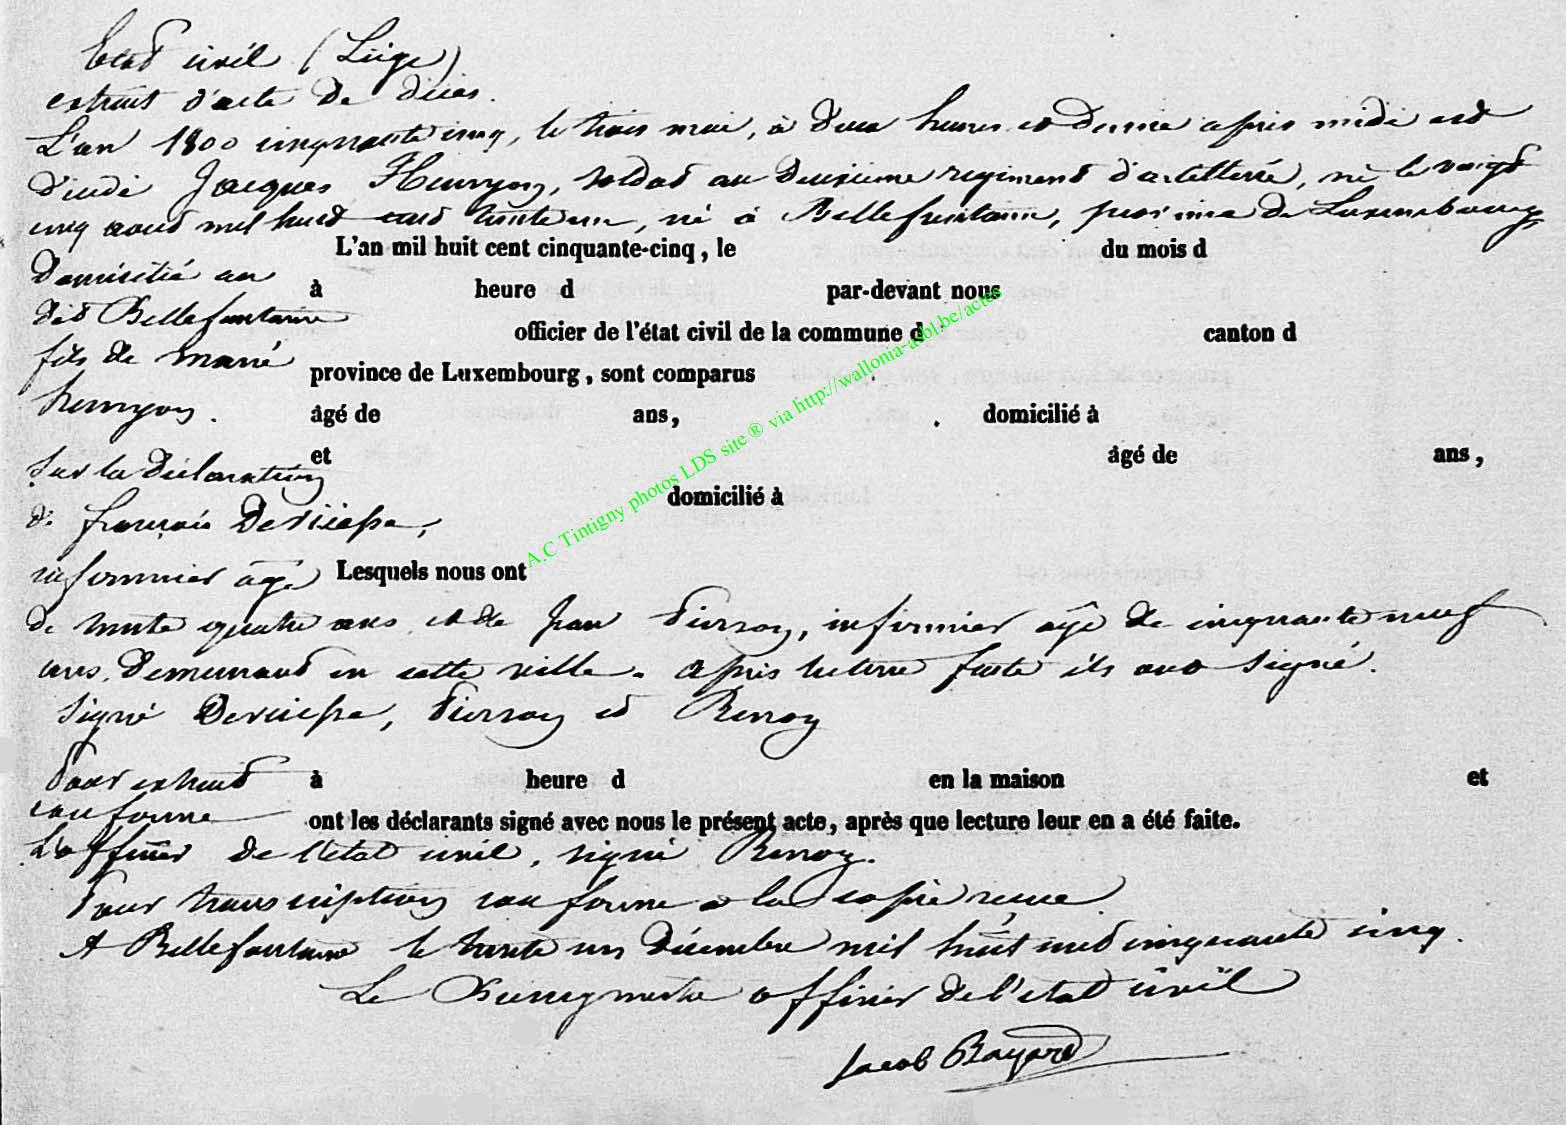 Etat civil (Liége)
extrait d'acte de décès.
L'an 1800 cinquante cinq, le trois mai, à deux heures et demie après midi est
décédé Jacques Henryon, soldat au deuxieme regiment d'artillerie, né le vingt
cinq aout mil huit cent trente un, né à Bellefontaine, province de Luxembourg,
L'an mil huit cent cinquante-cinq, le du mois d
domicilié au
à heure d par-devant nous
dit Bellefontaine
officier de l'état civil de la commune d canton d
fils de marie
province de Luxembourg, sont comparus
henryon.
âgé de ans, domicilié à
et âgé de ans,
sur la déclaration
domicilié à
de françois
infirmier âgé Lesquels nous ont
de trente quatre ans et de Jean Pierson, infirmier âgé de cinquante neuf
ans, demeurant en cette ville. après lecture faite ils ont signé.
signé Pierson et Renoz
Pour extrait à heure d en la maison et
conforme
ont les déclarants signé avec nous le présent acte, après que lecture leur en a été faite.
L'officier de l'état civil, signé Renoz.
Pour transcription conforme a la copie reçue
A Bellefontaine le trente un décembre mil huit cent cinquante cinq.
Le Bourgmestre officier de l'etat civil
Jacob Bayard
A.C Tintigny photos LDS site ® via http://wallonia-asbl.be/actes